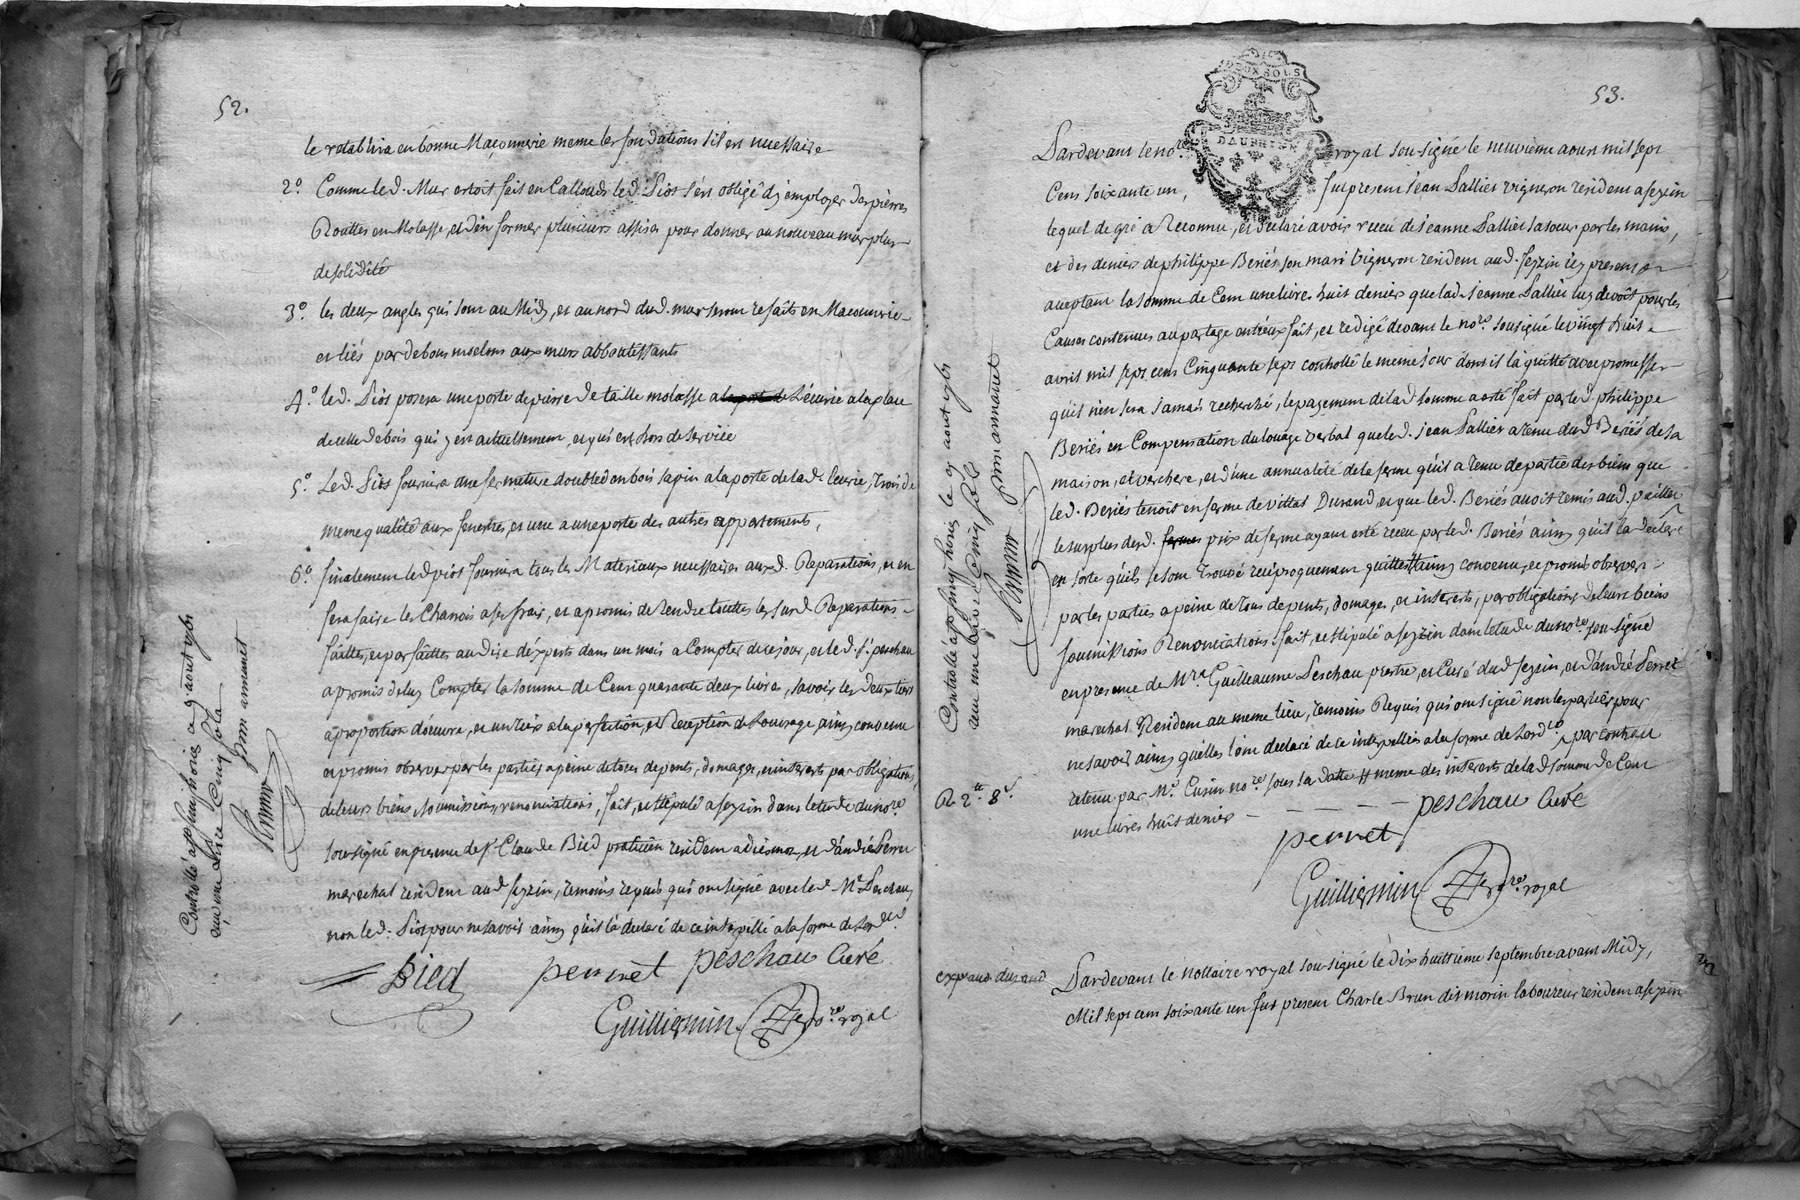 52.
le retablira en bonne Maçonnerie meme les fondations s'il est necessaire
2.° Comme led. Mur estoit fait en Calloud led. Pios s'est obligé d'y employer des pierres
Routtes en Molasse, et d'en former plusieurs assises pour donner au nouveau mur plus
de solidité
3.° les deux angles qui sont au Midy, et au nord dud. mur seront refaits en Maconnerie
et liés par de bons moelons aux murs abboutissants
4.° led. Pios posera une porte de pierre de taille molasse a l'écurie a la place
de celle de bois qui y est actuellement, et qui est hors de service
5.° Led. Pios fournira une fermeture double en bois sapin a la porte de lad. Ecurie, trois de
meme qualité aux fenestres, et une a une porte des autres appartements,
6.° finalement led pios fournira tous les Materiaux necessaires auxd. Reparations, et en
fera faire les Charrois a ses frais, et a promis de rendre touttes les susd. Reparations
faittes, et parfaittes au dire d'experts dans un mois a Compter de ce jour, et led. s.r peschau
a promis de luy Compter la somme de Cent quarante deux livres, savoir les deux tiers
a proportion d'œuvre, et un tiers a la perfection, et Reception de L'ouvrage ainsy convenu
et promis observer par les parties a peine de tous depents, domages, et interests par obligations
de leurs biens soumissions, renonciations, fait, et stipulé a seyzin dans letude du no.re
sousigné en presence de s.r Claude Bied praticien resident a diesmoz, et d'andré Perret
marechal resident aud. seyzin, temoins requis qui ont signé avec led M.re Peschau
non led. Pios pour ne savoir ainsy qu'il l'a declaré de ce interpellé a la forme de l'ord.ce
Bied
perret
peschau Curé
Guilliermin no.re royal
Controllé a st simphorien ce 9 aout 1761
reçu une livre Cinq sols
53.
DEUX SOLS
DAUPHINE
Pardevant le no.re royal sousigné le neuvieme aout mil sept
Cent soixante un, fut present Jean Pallier vigneron resident a seyzin
lequel de gré a Reconnu, et declaré avoir receu de Jeanne Pallier sa soeur par les mains,
et des deniers de philippe Beriés son mari Vigneron resident aud. seyzin icy present et
acceptant la somme de Cent une livres huit deniers que lad. Jeanne Pallier luy devoit pour les
Causes contenues au partage entr'eux fait, et redigé devant le no.re sousigné le vingt huit
avril mil sept cent Cinquante sept controllé le meme jour dont il l'a quitté avec promesse
qu'il n'en sera jamais recherché, le payement de lad somme a esté fait par led. philippe
Beriés en Compensation du louage verbal que led. jean Pallier a tenu dud Beriés de sa
maison, et verchere, et d'une annualité de la ferme qu'il a tenu de partie des biens que
led. Beriés tenoit en ferme de vittal Durand, et que led. Beriés avoit remis aud. pallier
le surplus desd. prix de ferme ayant esté receu par led. Beriés ainsy qu'il l'a declaré
en sorte qu'ils se sont trouvé reciproquement quittes ainsy convenu, et promis observer
par les parties a peine de tous depents, domages, et interests, par obligations de leurs biens
soumissions Renonciations. fait, et stipulé a seyzin dans letude du no.re sousigné
en presence de M.re Guilleaume Peschau Prestre, et Curé dud seyzin, et d'andré Perret
marechal Resident au meme lieu, temoins Requis qui ont signé non les parties pour
ne savoir ainsy qu'elles l'ont declaré de ce interpellés a la forme de l'ord.ce par contract
retenu par M.e Cusin no.re sous sa datte # meme des interests de lad somme de Cent
une livres huit deniers
perret
peschau Curé
Guilliermin no.re royal
Controllé a st simphorien le 9 aout 1761
R 2.tt 8.s
exp. aud durand
Pardevant le nottaire royal sousigné le dix huittieme septembre avant Midy,
Mil sept cent soixante un fut present Charle Brun dit morin laboureur resident a seyzin